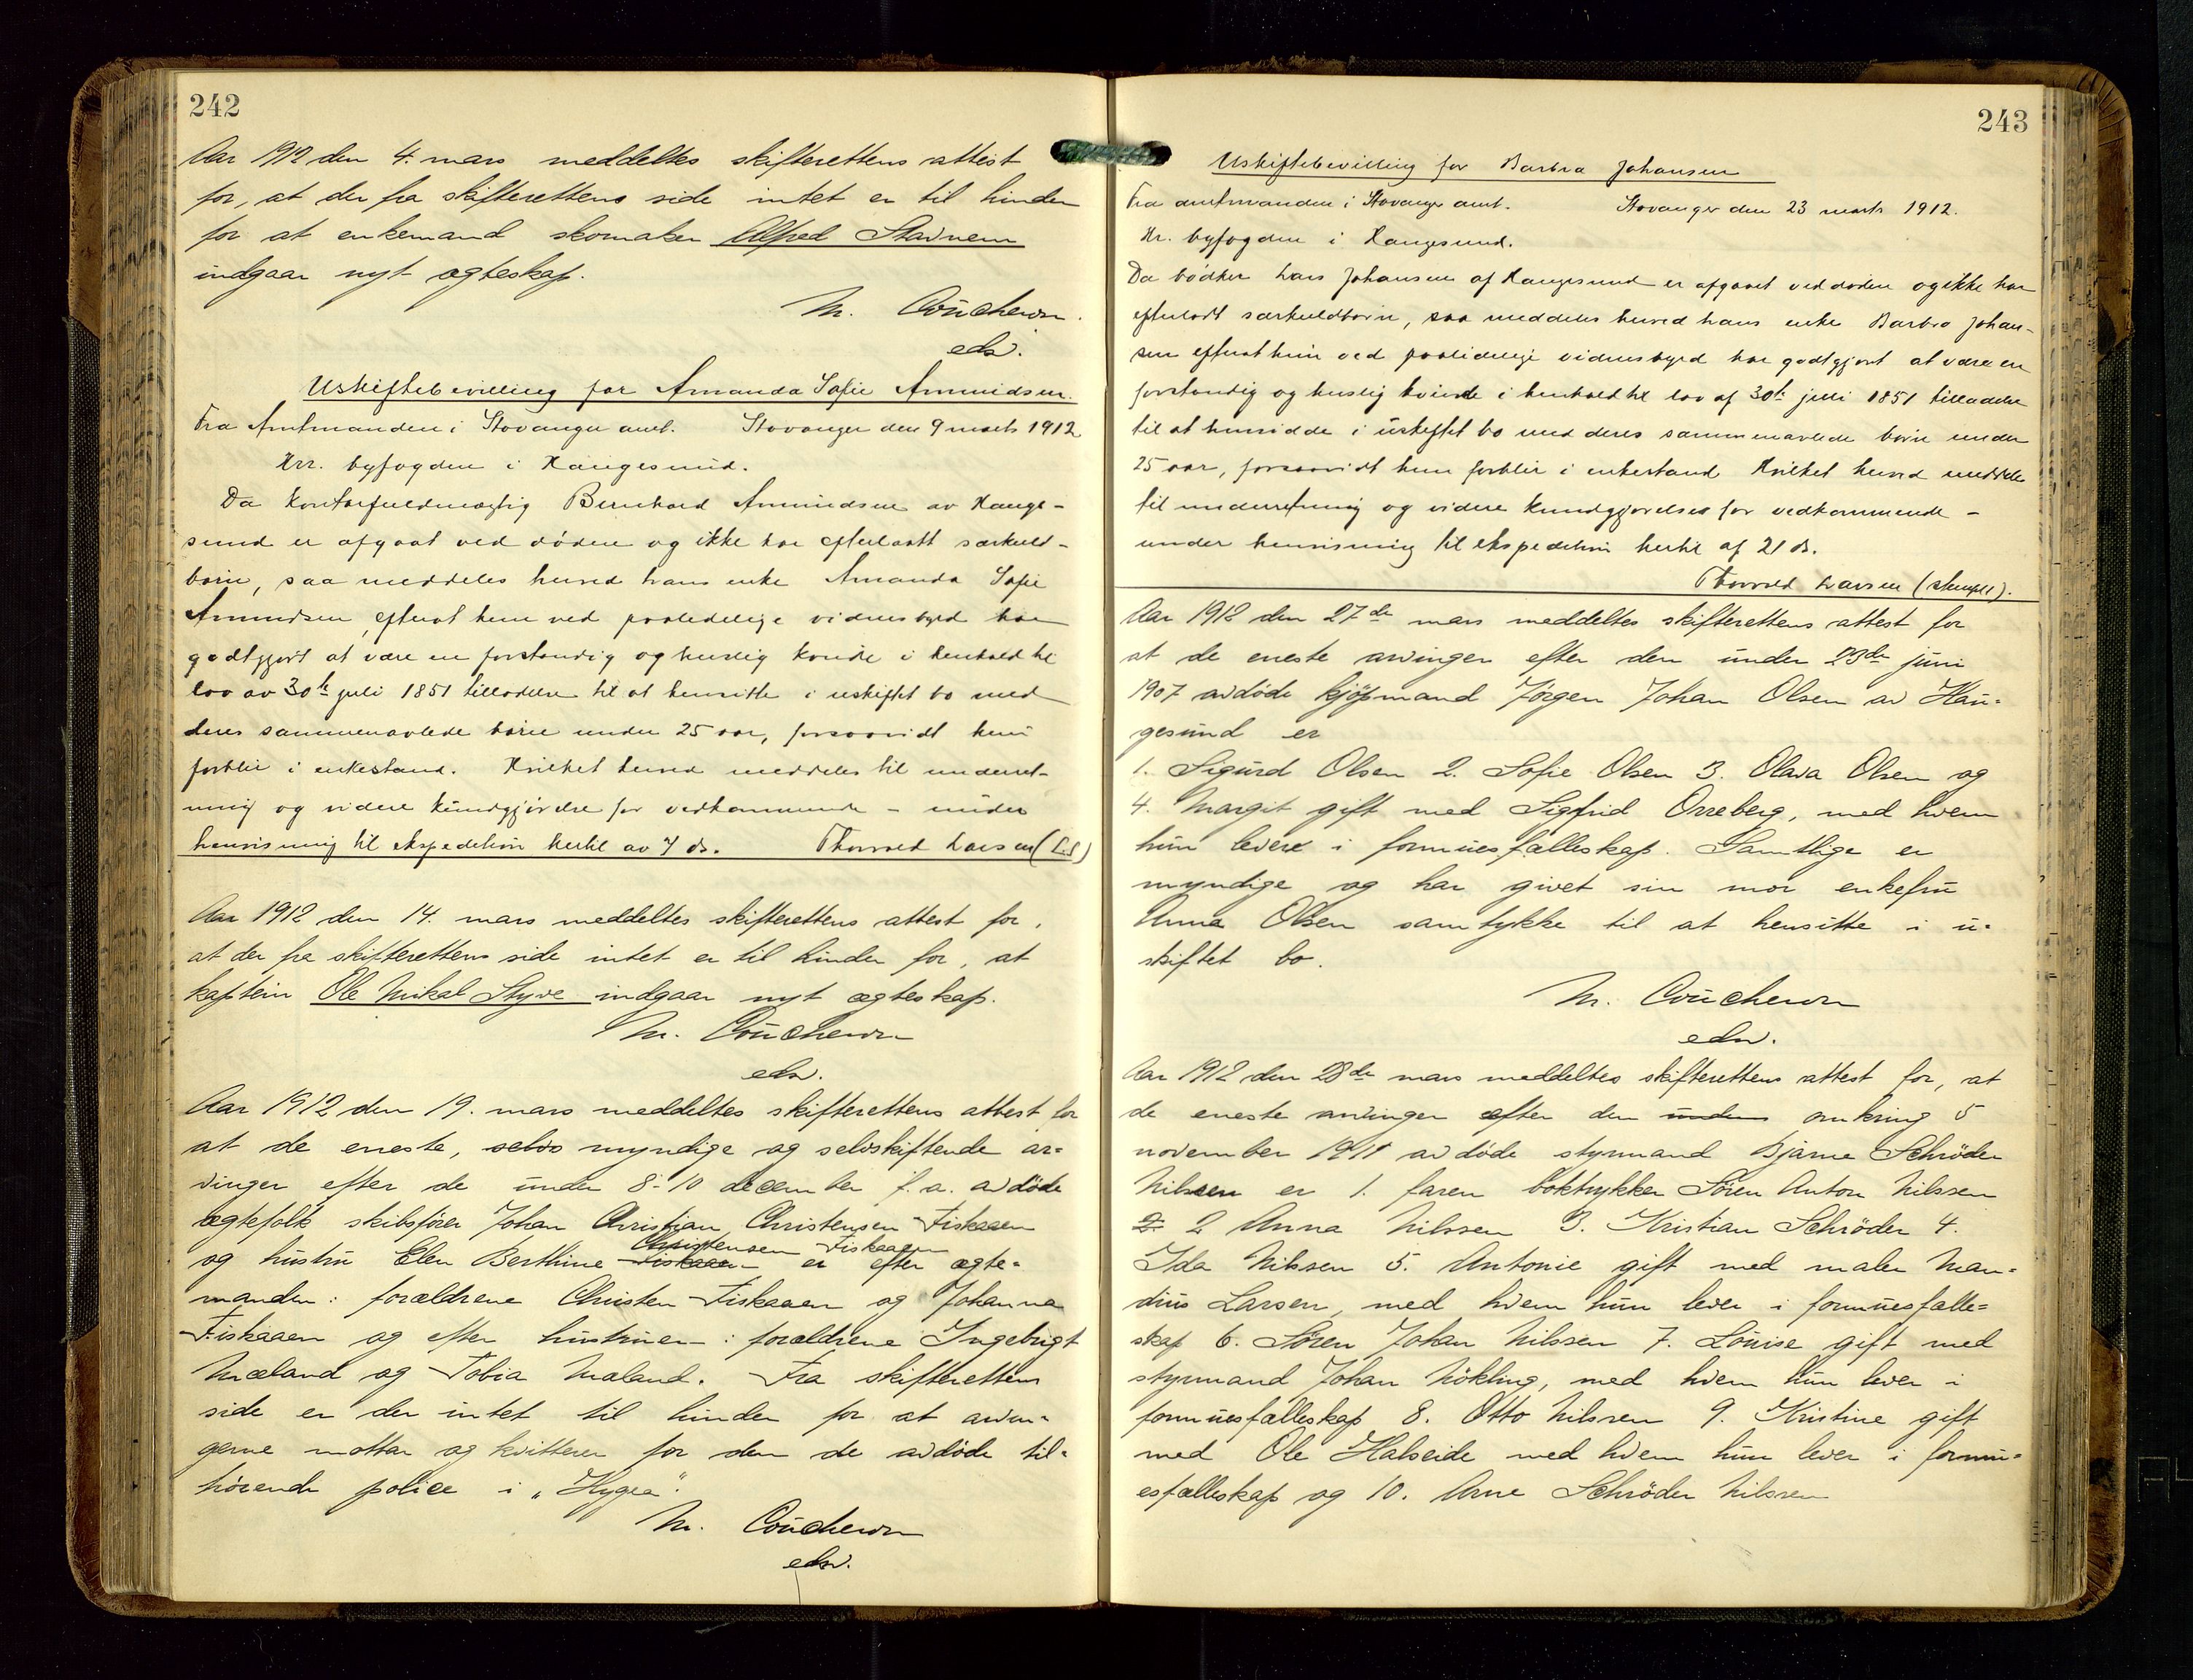 242
Aar 1912 den 4. mars meddeltes skifterettens attest
for, at der fra skifterettens side intet er til hinder
for at enkemand skomaker Alfred Stavnem
indgaar nyt ægteskap.
M. Coucheron
edv.
Uskiftebevilling for Amanda Sofie Amundsen.
Fra Amtmanden i Stavanger amt. Stavanger den 9 marts 1912
Hrr. byfogden i Haugesund.
Da kontorfuldmægtig Bernhard Amundsen av Hauge-
sund er afgaat ved døden og ikke har efterlatt særkuld-
børn, saa meddeles herved hans enke Amanda Sofie
Amundsen, efterat hun ved paalidelige vidnesbyrd har
godtgjort at være en forstandig og huslig kvinde i henhold til
lov av 30te juli 1851 tilladelse til at hensitte i uskiftet bo med
deres sammenavlede børn under 25 aar, forsaavidt hun
forblir i enkestand. Hvilket herved meddeles til underret-
ning og videre kundgjørelse for vedkommende – under
henvisning til ekspedition hertil av 7 ds. Thorvald Larsen (L.S)
Aar 1912 den 14. mars meddeltes skifterettens attest for,
at der fra skifterettens side intet er til hinder for, at
kaptein Ole Mikal Styve indgaar nyt ægteskap.
M. Coucheron
edv.
Aar 1912 den 19. mars meddeltes skifterettens attest for
at de eneste, selvs myndige og selvskiftende ar=
vinger efter de under 8-10 december f. a. avdöde
ægtefolk skibsfører Johan Christian Christensen Fiskaaen
Christensen Fiskaaen
og hustru Elen Berthine Fiskaaen er efter ægte=
manden: forældrene Christen Fiskaaen og Johanna
Fiskaaen og efter hustruen: forældrene Ingebrigt
Mæland og Tobia Mæland. Fra skifterettens
side er der intet til hinder for at arvin=
gerne mottar og kvitterer for den de avdöde til=
hørende police i „Hygea".
M. Coucheron
edv.
243
Uskiftebevilling for Barbra Johansen
Fra amtmanden i Stavanger amt. Stavanger den 23 marts 1912.
Hr. byfogden i Haugesund.
Da bødker Lars Johansen af Haugesund er afgaaet ved døden og ikke har
efterladt særkuldbørn, saa meddeles herved hans enke Barbro Johan-
sen efterat hun ved paalidelige vidnesbyrd har godtgjort at være en
forstandig og huslig kvinde i henhold til lov af 30te juli 1851 tilladelse
til at hensidde i uskiftet bo med deres sammenavlede børn under
25 aar, forsaavidt hun forblir i enkestand. Hvilket herved meddeles
til underretning og videre kundgjørelse for vedkommende –
under henvisning til ekspedition hertil af 21 ds.
Thorvald Larsen (stempel).
Aar 1912 den 27de mars meddeltes skifterettens attest for
at de eneste arvinger efter den under 23de juni
1907 avdöde kjöpmand Jörgen Johan Olsen av Hau=
gesund er
1. Sigurd Olsen 2. Sofie Olsen 3. Olava Olsen og
4. Margit gift med Sigfrid Orreberg, med hvem
hun lever i formuesfælleskap. Samtlige er
myndige og har givet sin mor enkefru
Anna Olsen samtykke til at hensitte i u=
skiftet bo.
M. Coucheron
edv.
Aar 1912 den 28de mars meddeltes skifterettens attest for, at
de eneste arvinger efter den under omkring 5
november 1911 avdöde styrmand Bjarne Schröder
Nilssen er 1. faren boktrykker Sören Anton Nilssen
2 2 Anna Nilssen 3. Kristian Schröder 4.
Ida Nilssen 5. Antonie gift med maler Man=
dius Larsen, med hvem hun lever i formuesfælle=
skap 6. Sören Johan Nilssen 7. Louise gift med
styrmand Johan Nökling, med hvem hun lever i
formuesfælleskap 8. Otto Nilssen 9. Kristine gift
med Ole Halseide med hvem hun lever i formu=
esfælleskap og 10. Arne Schröder Nilssen